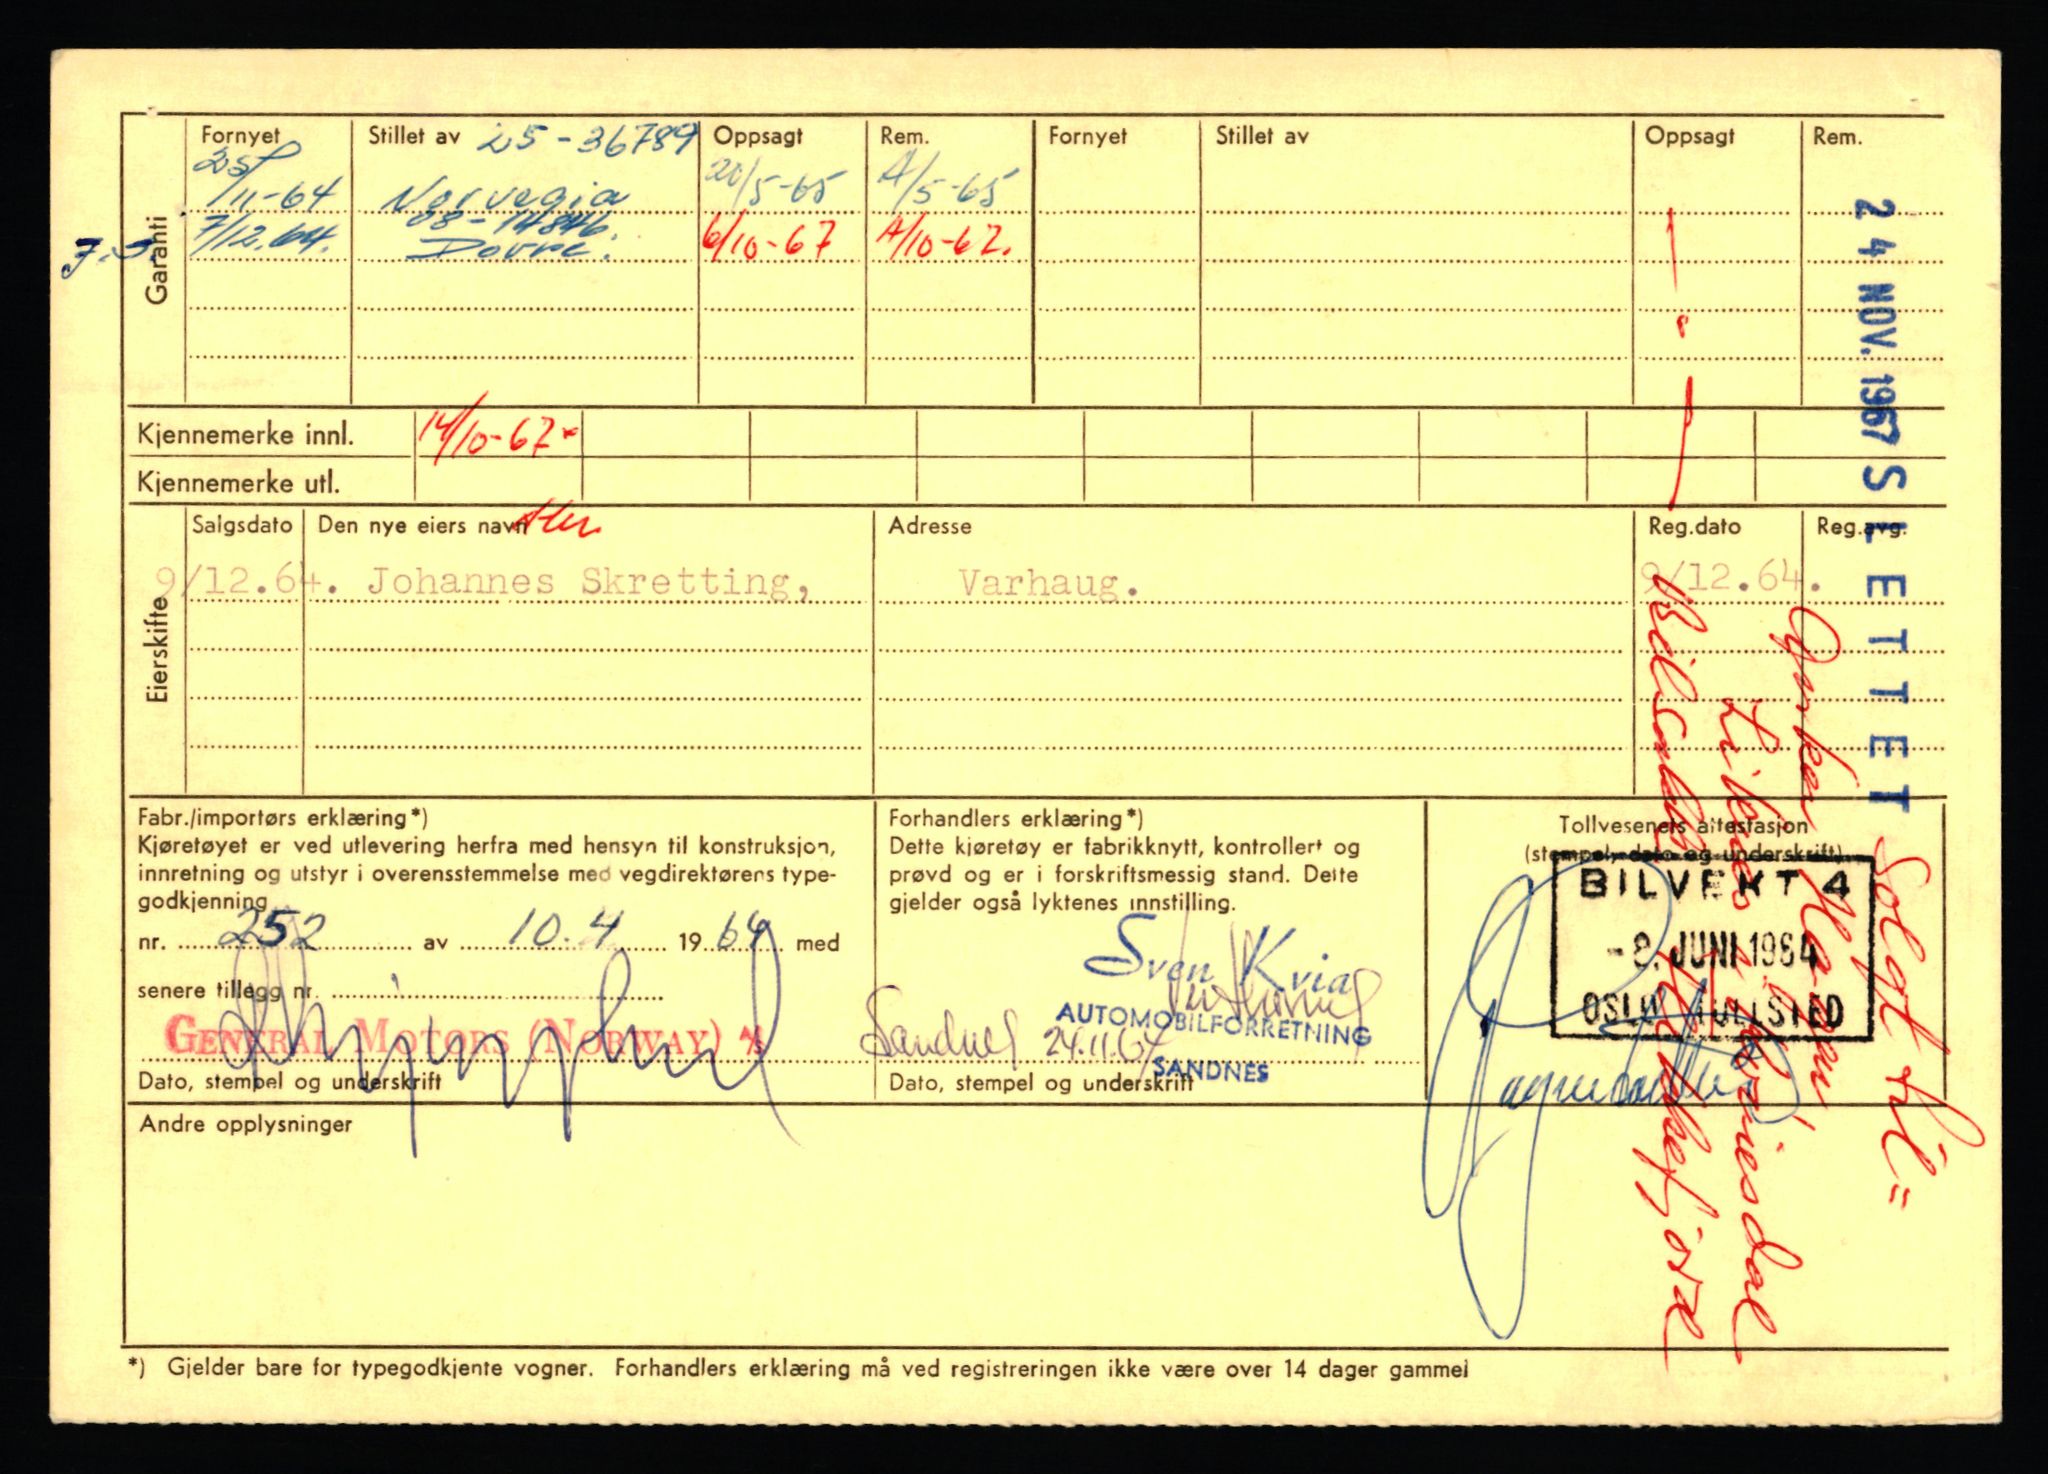 Garanti
Fornyet Stillet av 25-36789 Oppsagt Rem. Fornyet Stillet av Oppsagt Rem.
25/11-64 Norvegia 20/5-65 A/5-65
7/12.64. 08-14846. Dovre. 6/10-67 A/10-67.
J.S.
Kjennemerke innl. 14/10-67
Kjennemerke utl.
Eierskifte
Salgsdato Den nye eiers navn Adresse Reg.dato Reg.avg.
9/12.64. Johannes Skretting, Varhaug. 9/12.64.
Fabr./importørs erklæring*)
Kjøretøyet er ved utlevering herfra med hensyn til konstruksjon,
innretning og utstyr i overensstemmelse med vegdirektørens type-
godkjenning
nr. 252 av 10.4 1964 med
senere tillegg nr.
GENERAL MOTORS (NORWAY) A/S
Dato, stempel og underskrift
Forhandlers erklæring*)
Dette kjøretøy er fabrikknytt, kontrollert og
prøvd og er i forskriftsmessig stand. Dette
gjelder også lyktenes innstilling.
Sven Kvia
AUTOMOBILFORRETNING
Sandnes 24.11.64
SANDNES
Dato, stempel og underskrift
Tollvesenets attestasjon
(stempel, dato og underskrift)
BILVEKT 4
-8. JUNI 1964
OSLO TOLLSTED
Andre opplysninger
*) Gjelder bare for typegodkjente vogner. Forhandlers erklæring må ved registreringen ikke være over 14 dager gammel
24 NOV. 1967 SLETTET
Solgt til =
Liknes i Kvinesdal
Bilsalg